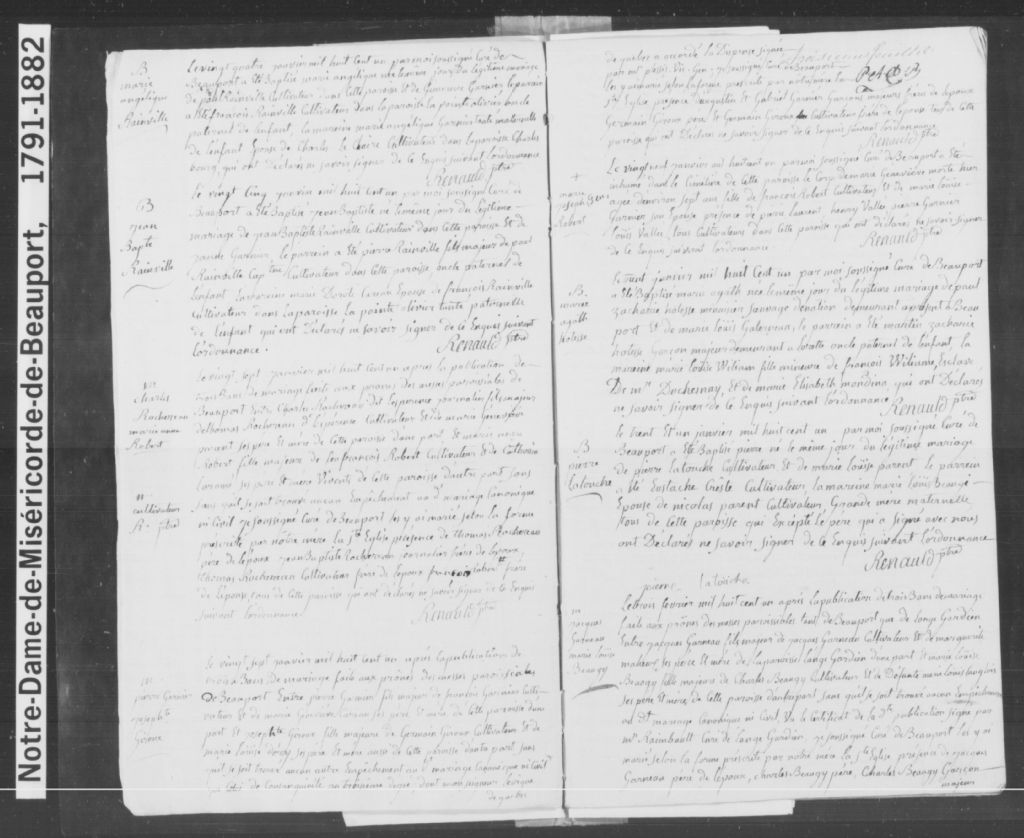 Notre-Dame-de-Miséricorde-de-Beauport, 1791-1882
B
marie
angelique
Rainville
Le vingt quatre janvier mil huit cent un par moi soussigné Curé de
Beauport a été Baptisé marie angelique née le même jour du légitime mariage
de paul Rainville Cultivateur dans cette paroisse et de Genevieve Garnier le parain
a été françois Rainville Cultivateur dans la paroisse la pointe olivier oncle
paternel de l'enfant, la maraine marie angelique Garnier tante maternelle
de l'enfant Epouse de Charles le Claire Cultivateur dans la paroisse Charles
bourg, qui ont déclarés ne savoir signer de ce Enquis suivant l'ordonnance
Renauld ptre
B
jean
Bapte
Rainville
Le vingt Cinq janvier mil huit cent un par moi soussigné Curé de
Beauport a été Baptisé jean Baptiste né le même jour du légitime
mariage de jean Baptiste Rainville Cultivateur dans cette paroisse et de
le parrain a été pierre Rainville fils majeur de paul
Rainville Cap Cultivateur dans cette paroisse oncle paternel de
l'enfant la marraine marie Epouse de françois Rainville
Cultivateur dans la paroisse la pointe olivier tante paternelle
de l'enfant qui ont Déclarés ne savoir signer de ce Enquis suivant
l'ordonnance.
Renauld ptre
m
Charles
Rochereau
marie anne
Robert
Le vingt sept janvier mil huit cent un après la publication de
trois Bans de mariage faite aux prones des messes paroissiales de
Beauport Entre Charles Rochereau dit lesperance journalier fils majeur
de thomas Rochereau dit lesperance Cultivateur et de marie Genevieve
parent ses pere et mere de cette paroisse d'une part et marie anne
Robert fille majeure de feu françois Robert Cultivateur et de Catherine
ses pere et mere Vivants de cette paroisse d'autre part sans
quil se soit trouvé aucun Empêchement au d mariage Canonique
ni Civil je soussigné Curé de Beauport les y ai marié selon la forme
prescrite par notre mere la Ste Eglise présence de thomas Rochereau
pere de l'epoux jean Baptiste Rochereau journalier frere de l'epoux
thomas Rochereau Cultivateur frere de l'epoux françois Robert frere
de l'epouse, tous de cette paroisse qui ont déclarés ne savoir signer de ce Enquis
suivant l'ordonnance
Renauld ptre
n
cultivateur
R. ptre
m
pierre Garnier
josephte
Giroux
Le vingt sept janvier mil huit cent un après la publications de
trois Bans de mariage faite aux prones des messes paroissiales
de Beauport Entre pierre Garnier fils majeur de Garnier Culti-
vateur et de marie Genevieve ses pere et mere de cette paroisse d'une
part et josephte Giroux fille majeure de Germain Giroux Cultivateur et de
marie Louise ses pere et mere aussi de cette paroisse d'autre part sans
quil se soit trouvé aucun autre Empêchement au d mariage Canonique ni Civil
que de Consanguinité au troisieme degré, dont monseigneur l'evêque
de quebec
de quebec a accordé la Dispense signée
par mr plessis Vic-Gen. je soussigné Curé de Beauport
les y ai mariés selon la forme prescrite par notre mere la
Ste Eglise presence d'augustin et Gabriel Garnier Garçons majeurs freres de l'epoux
Germain Giroux pere et Germain Giroux Cultivateur frere de l'epouse tous de cette
paroisse qui ont Déclarés ne savoir signer de ce Enquis suivant l'ordonnance
Renauld ptre
+
marie
Robert
Le vingt neuf janvier mil huit cent un par moi soussigné Curé de Beauport a Eté
inhumé dans le Cimetière de cette paroisse le Corps de marie Geneviève morte hier
agée d'environ sept ans fille de françois Robert Cultivateur et de marie louise
Garnier son Epouse presence de pierre laurent henry Vallée pierre Garnier
louis Vallée, tous Cultivateurs dans cette paroisse qui ont déclarés ne savoir signer
de ce Enquis suivant l'ordonnance.
Renauld ptre
B.
marie
agath
holesse
Le trent janvier mil huit Cent un par moi soussigné Curé de Beauport
a été Baptisé marie agath née le même jour du légitime mariage de paul
zacharie holesse menuisier sauvage de nation demeurant a present a Beau
port et de marie louis le parrain a été martin zacharie
holesse Garçon majeur demeurant a lorette oncle paternel de l'enfant, la
maraine marie louise Wiliame fille mineure de françois Wiliame Esclave
De mr Duchesnay, et de marie Elisabeth mondina, qui ont Déclarés
ne savoir signer de ce Enquis suivant l'ordonnance
Renauld ptre
B
pierre
Latouche
le trent et un janvier mil huit cent un par moi soussigné Curé de
Beauport a été Baptisé pierre né le même jour du légitime mariage
de pierre latouche Cultivateur et de marie louise parent le parrein
a été Eustache Crête Cultivateur, la mareine marie louise Beaugi
Epouse de nicolas parent Cultivateur, Grande mère maternelle
tous de cette paroisse qui Excepté le pere qui a signé avec nous
ont Déclarés ne savoir signer de ce Enquis suivant l'ordonnance
Renauld ptre
pierre Latouche
m
jacques
Garneau
marie louise
Beaugy
Le trois février mil huit cent un après la publication de trois Bans de mariage
faite aux prônes des messes paroissiales tant de Beauport que de lange Gardien
Entre jacques Garneau fils majeur de jacques Garneau Cultivateur et de marguerite
maheux ses pere et mere de la paroisse lange Gardien d'une part et marie louise
Beaugy fille majeure de Charles Beaugy Cultivateur et de Défunte marie louise
ses pere et mere de cette paroisse d'autre part sans quil se soit trouvé aucun Empêchement
au dt mariage Canonique ni Civil, Vu le Certificat de la de publication signé par
mr Raimbault Curé de lange Gardien, je soussigné Curé de Beauport les y ai
marié selon la forme prescrite par notre mere la Ste Eglise, presence de jacques
Garneau pere de l'epoux, Charles Beaugy père, Charles Beaugy Garçon
majeur